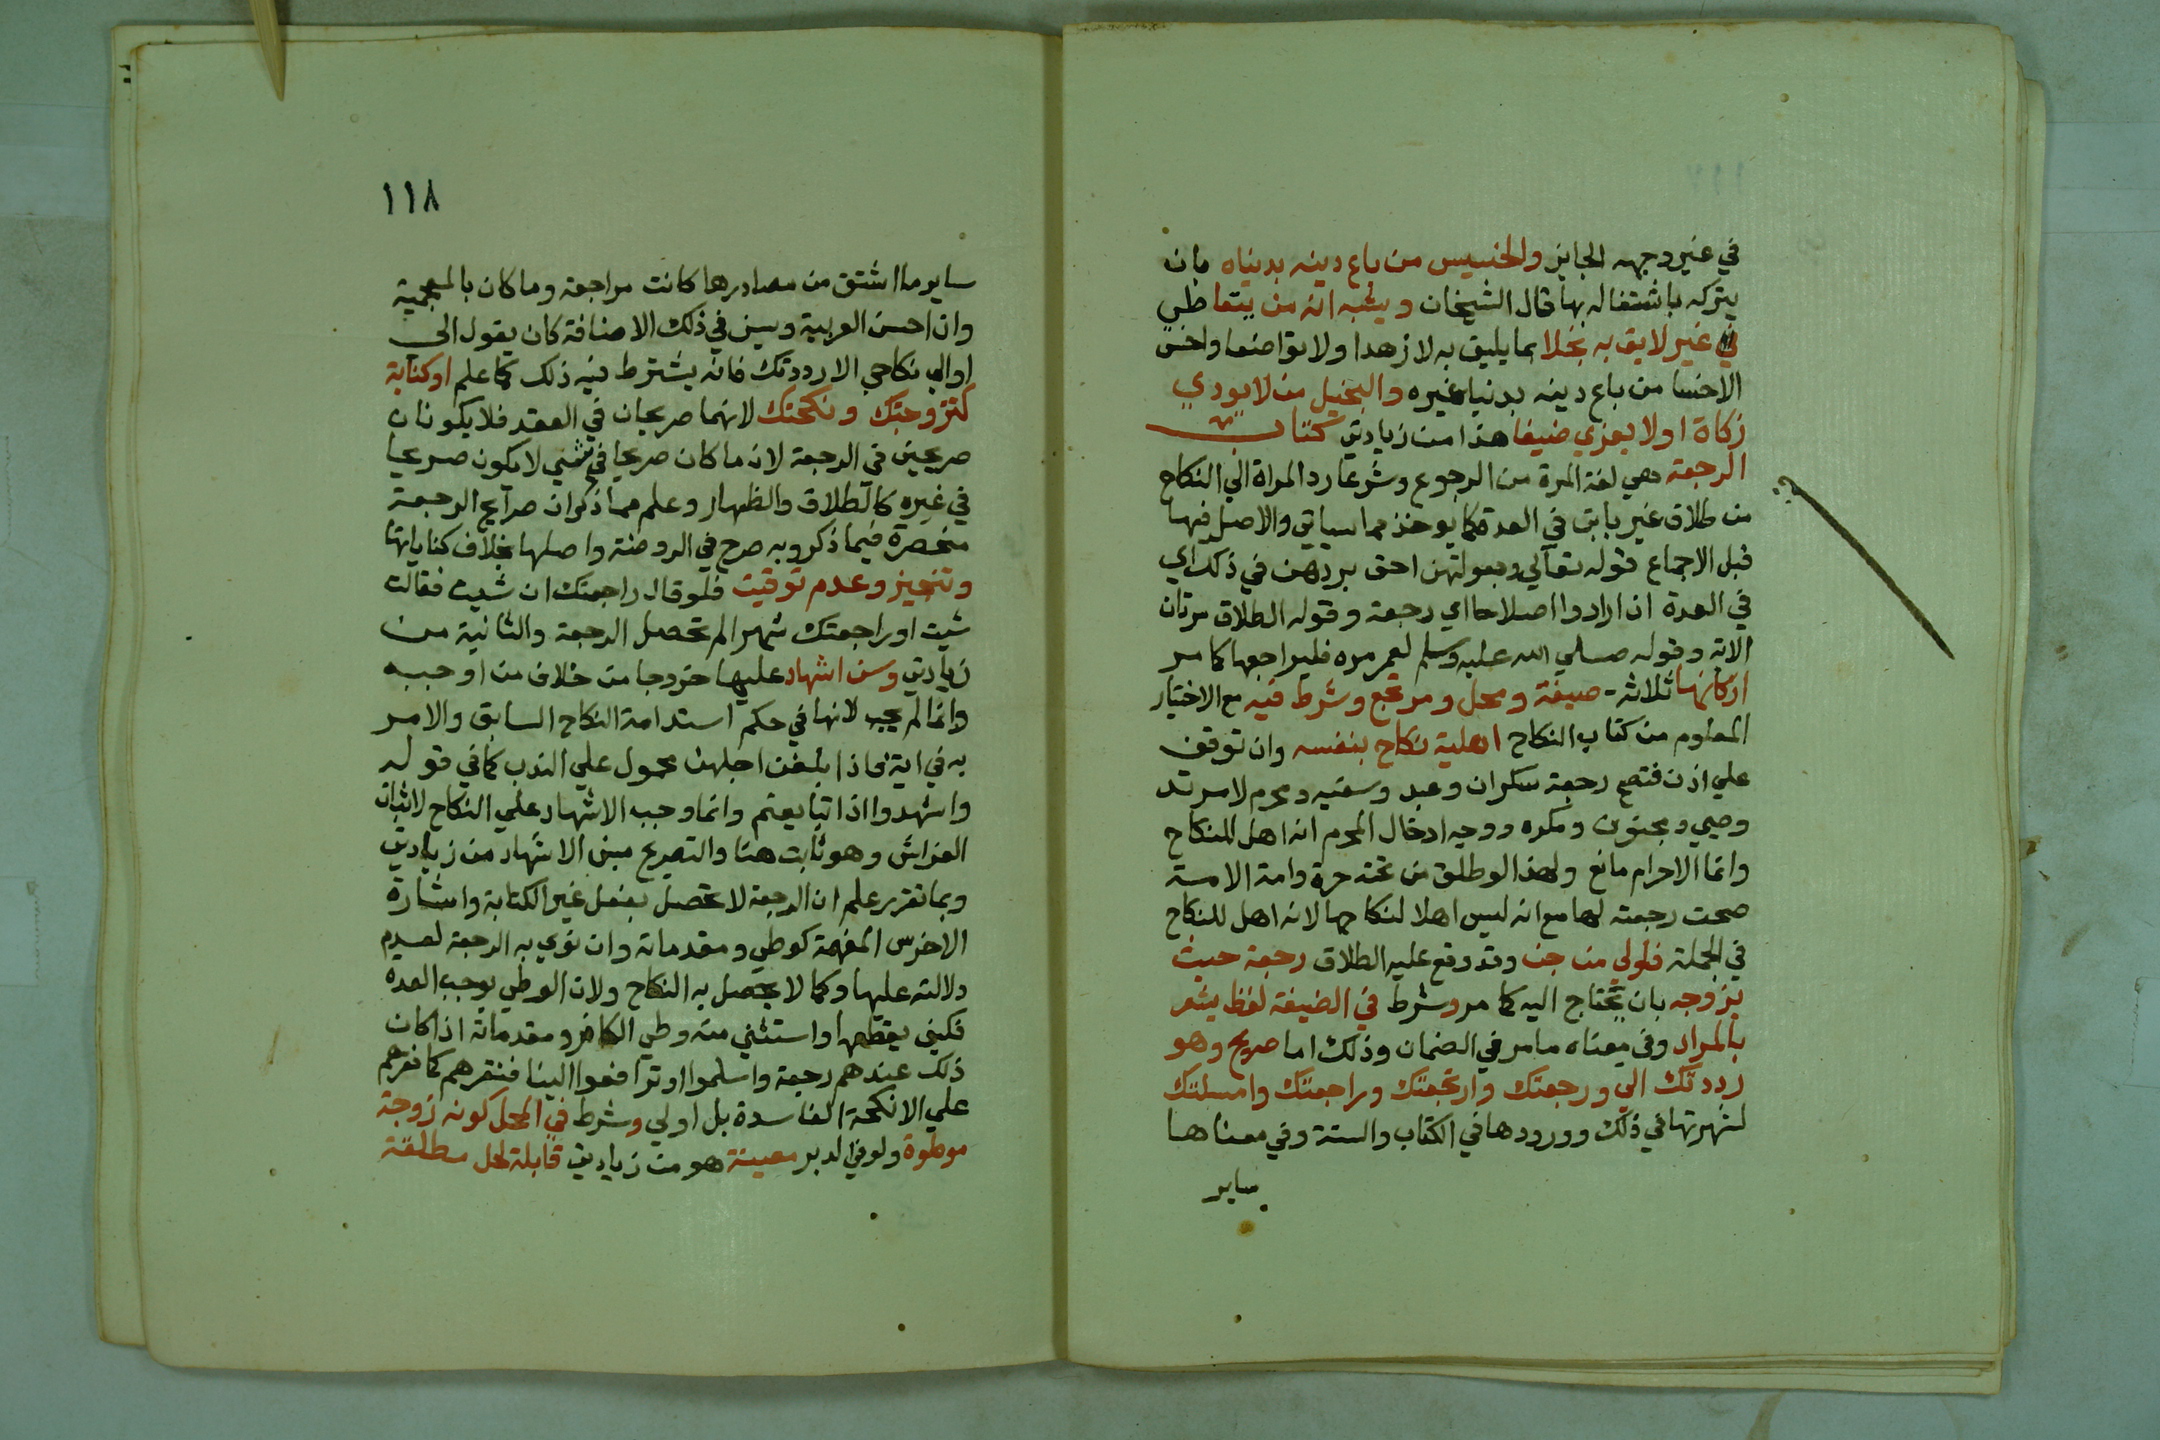 في غير وجهه الجايز والخسيس من باع دينه بدنياه بان
يتركه باشتغاله بها قال الشيخان ويشبه انه من يتعاطي
في غير لايق به بخلا بما يليق به لا زهدا ولا تواضعا واخس
الاخسا من باع دينه بدنيا غيره والبخيل من لا يودي
زكاة او لا يقري ضيفا هذا من زيادتي كتاب
الرجعة هي لغة المرة من الرجوع وشرعا رد المراة الي النكاح
من طلاق غير باين في العدة كما يوخذ مما سياتي والاصل فيها
قبل الاجماع قوله تعالي وبعولتهن احق بردهن في ذلك اي
في العدة ان ارادوا اصلاحا اي رجعة وقوله الطلاق مرتان
الاته وقوله صلي الله عليه وسلم لعمر مره فليراجعها كما مر
اركانها ثلاثة صيغة ومحل ومرتجع وشرط فيه مع الاختيار
المعلوم من كتاب النكاح اهلية نكاح بنفسه وان توقف
علي اذن فتصح رجعة سكران وعبد وسفيه ومحرم لا مرتد
وصبي ومجنون ومكره ووجه ادخال المحرم انه اهل للنكاح
وانما الاحرام مانع ولهذا لو طلق من تحته حرة وامة الامة
صحت رجعته لها مع انه ليس اهلا لنكاحها لانه اهل للنكاح
في الجملة فلولي من جن وقد وقع عليه الطلاق رجعة حيث
يزوجه بان يحتاج اليه كما مر وشرط في الصيغة لفظ يشعر
بالمراد وفي معناه ما مر في الضمان وذلك اما صريح وهو
رددتك الي ورجعتك وارتجعتك وراجعتك وامسكتك
لشهرتها في ذلك وورودها في الكتاب والسنة وفي معناها
ساير
١١٨
ساير ما اشتق من مصادرها كانت مراجعة وما كان بالعجمية
وان احسن العربية وسن في ذلك الاضافة كان يقول الي
او الي نكاحي الا رددتك فانه يشترط فيه ذلك كما علم او كناية
كتزوجتك ونكحتك لانهما صريحان في العقد فلا يكونان
صريحين في الرجعة لان ما كان صريحا في شي لا يكون صريحا
في غيره كالطلاق والظهار وعلم مما ذكر ان صرايح الرجعة
منحصرة فيما ذكر وبه صرح في الروضة واصلها بخلاف كناياتها
وتنجيز وعدم توقيت فلو قال راجعتك ان شيت فقالت
شيت او راجعتك شهرا لم تحصل الرجعة والثانية من
زيادتي وسن اشهاد عليها خروجا من خلاف من اوجبه
وانما لم يجب لانها في حكم استدامة النكاح السابق والامر
به في اية فاذا بلغن اجلهن محمول علي الندب كما في قوله
واشهدوا اذا تبايعتم وانما وجب الاشهاد علي النكاح لاثبات
الفراش وهو ثابت هنا والتصريح بسن الاشهاد من زيادتي
وبما تقرر علم ان الرجعة لا تحصل بفعل غير الكتابة واشارة
الاخرس المفهمة كوطي ومقدماته وان نوي به الرجعة لعدم
دلالته عليها وكما لا يحصل به النكاح ولان الوطي يوجب العده
فكيف يقطعها واستثني منه وطي الكافر ومقدماته اذا كان
ذلك عندهم رجعة واسلموا او ترافعوا الينا فنقرهم كما نقرهم
علي الانكحة الفاسدة بل اولي وشرط في المحل كونه زوجة
موطوة ولو في الدبر معينة هو من زيادتي قابلة لحل مطلقة